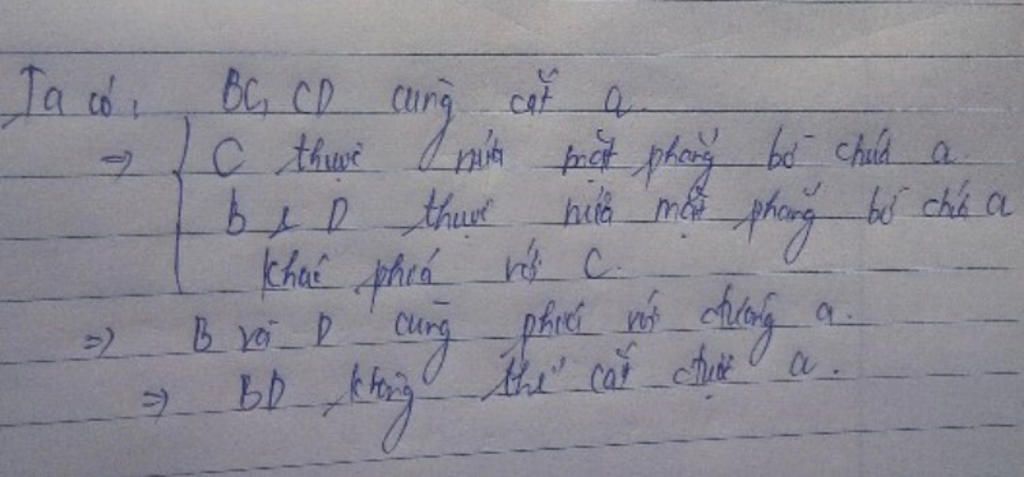 Ta có, BC, CD cùng cắt a.
=> { C thuộc nửa mặt phẳng bờ chứa a.
B & D thuộc nửa mặt phẳng bờ chứa a
khác phía với C.
=> B và D cùng phía với đường a.
=> BD không thể cắt được a.